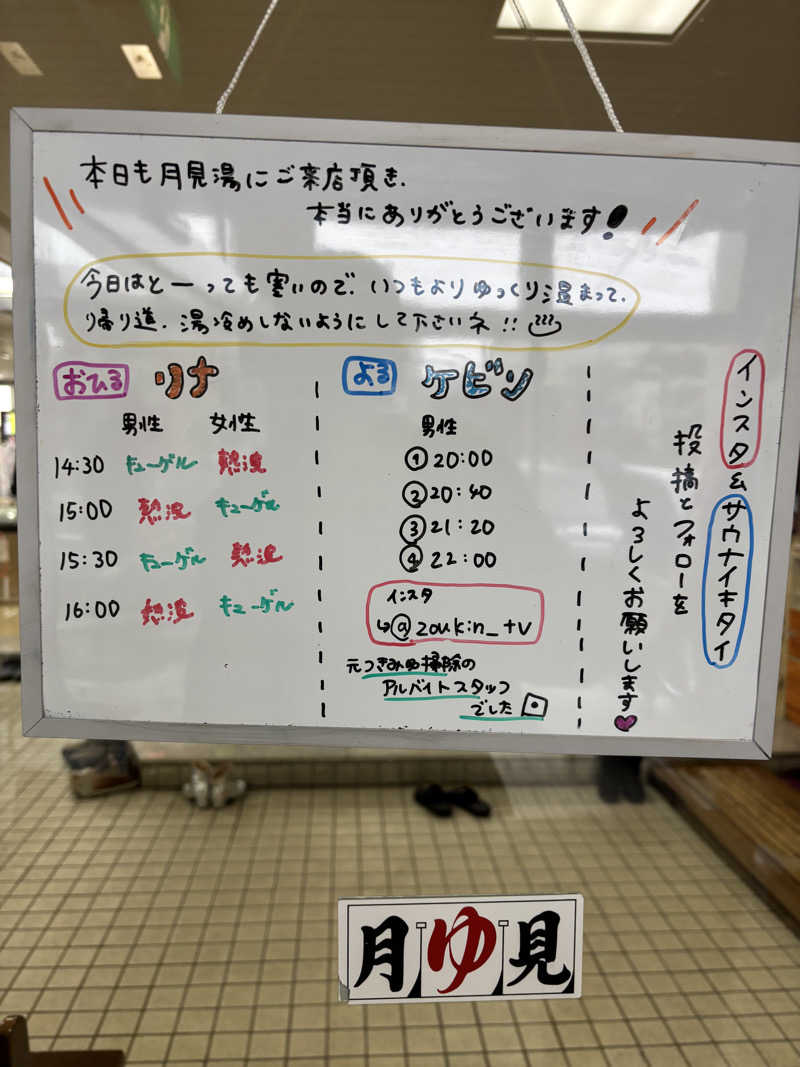 本日も月見湯にご来店頂き、
本当にありがとうございます!
今日はとーっても寒いので、いつもよりゆっくり温まって、
帰り道、湯冷めしないようにして下さいネ!!
おひる リナ
男性 女性
14:30 キューゲル 熱波
15:00 熱波 キューゲル
15:30 キューゲル 熱波
16:00 熱波 キューゲル
よる ケビン
男性
① 20:00
② 20:40
③ 21:20
④ 22:00
インスタ
↳@zoukin_tv
元つきみゆ掃除の
アルバイトスタッフ
でした
インスタ&サウナイキタイ
投稿とフォローを
よろしくお願いします
月ゆ見